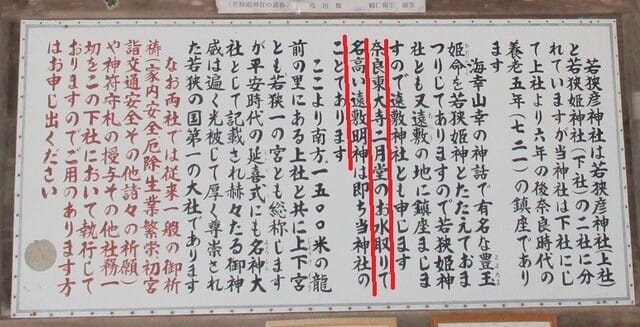 若狭彦神社は若狭彦神社(上社)
と若狭姫神社(下社)の二社に分
れていますが当神社は下社にし
て上社より六年の後奈良時代の
養老五年(七二一)の鎮座であり
ます
海幸山幸の神話で有名な豊玉
姫命を若狭姫神とたたえておま
つりしてありますので若狭姫神
社とも又遠敷の地に鎮座ましま
すので遠敷神社とも申します
奈良東大寺二月堂のお水取りて
名高い遠敷明神は即ち当神社の
ことであります
ここより南方一五〇〇米の龍
前の里にある上社と共に上下宮
とも若狭一の宮とも総称します
が平安時代の延喜式にも名神大
社として記載され赫々たる御神
威は遍く光被して厚く尊崇され
た若狭の国第一の大社であります
なお両社では従来一般の御祈
祷(家内安全厄除生業繁栄初宮
詣交通安全その他諸々の祈願)
や神符守札の授与その他社務一
切をこの下社において執行して
おりますのでご用のあります方
はお申し出ください